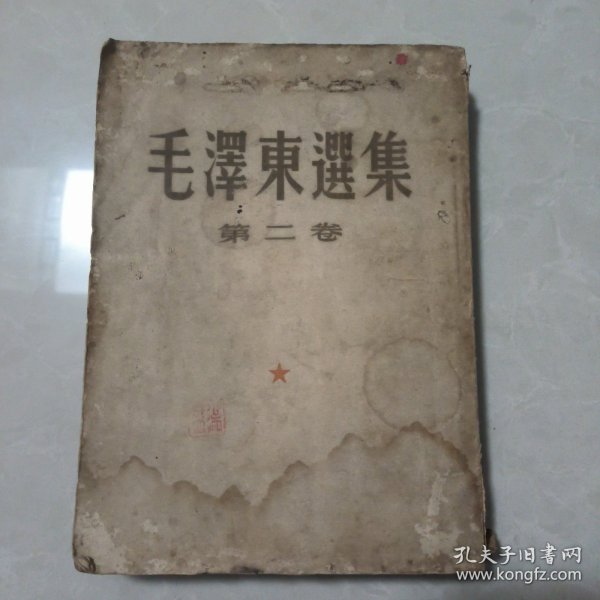 毛澤東選集
第二卷
孔夫子旧書网
www.kongfz.com